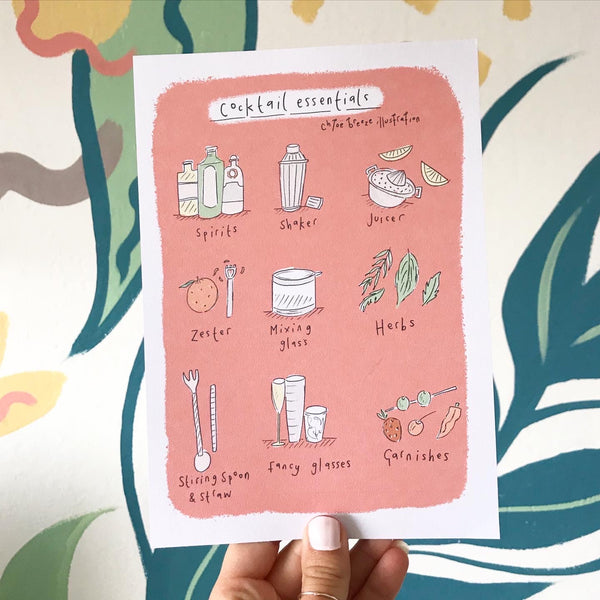 cocktail essentials
chloe breeze illustration
Spirits
Shaker
Juicer
Zester
Mixing
glass
Herbs
Stiring Spoon
& Straw
fancy glasses
Garnishes